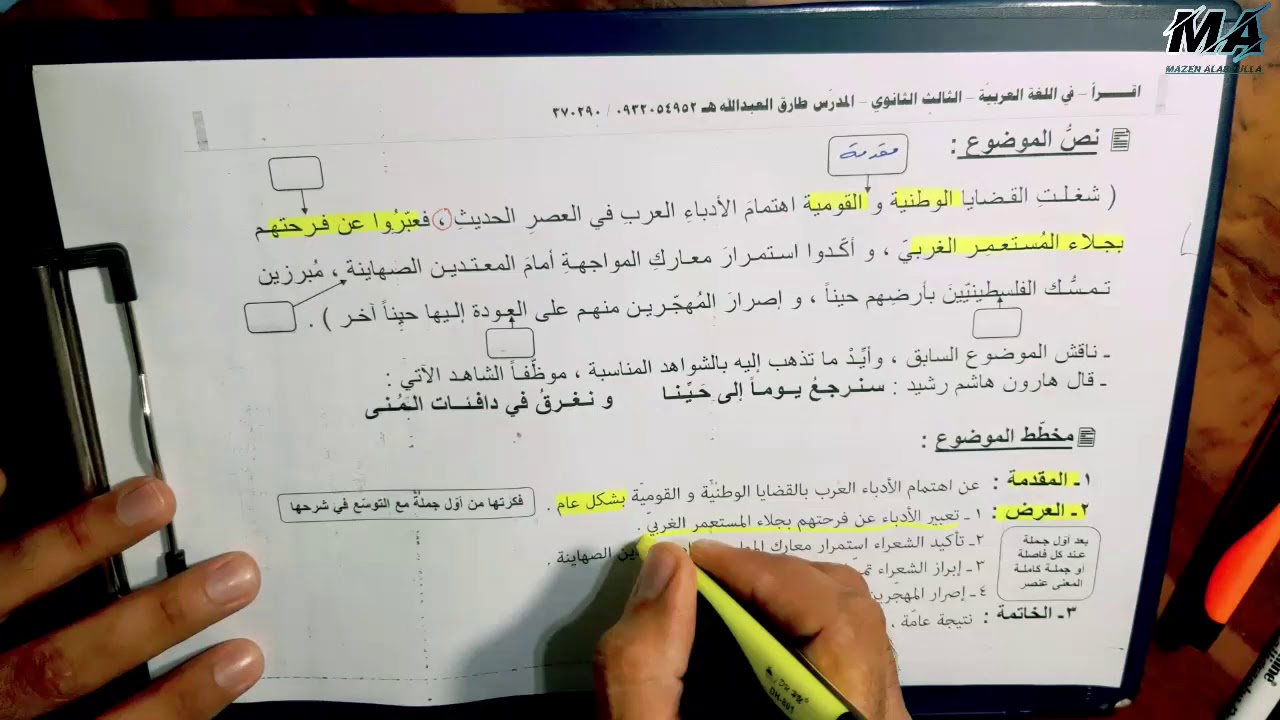 MA
MAZEN ALABDULLA
اقــــرأ – في اللغة العربية – الثالث الثانوي – المدرّس طارق العبدالله هـ ٠٩٣٢٠٥٤٩٥٢ / ٣٧٠٢٩٠
نصُّ الموضوع :
مقدمة
( شغلتِ القضايا الوطنية و القومية اهتمامَ الأدباءِ العربِ في العصرِ الحديثِ ، فعبّرُوا عن فرحتهم
بجلاء المُستعمِر الغربيّ ، و أكّدوا استمرارَ معاركِ المواجهةِ أمامَ المعتدين الصهاينة ، مُبرزين
تمسُّك الفلسطينيّينَ بأرضِهم حيناً ، و إصرارَ المُهجّرين منهم على العودة إليها حيناً آخر ) .
ـ ناقش الموضوع السابق ، وأيِّدْ ما تذهب إليه بالشواهد المناسبة ، موظّفاً الشاهد الآتي :
ـ قال هارون هاشم رشيد : سنرجعُ يوماً إلى حَيِّنا و نغرقُ في دافئات المُنى
مخطّط الموضوع :
١ـ المقدمة : عن اهتمام الأدباء العرب بالقضايا الوطنيّة و القوميّة بشكل عام .
فكرتها من أوّل جملةٌ مع التوسّع في شرحها
٢ـ العرض : ١ ـ تعبير الأدباء عن فرحتهم بجلاء المستعمر الغربيّ .
٢ـ تأكيد الشعراء استمرار معارك الصهاينة .
٣ـ إبراز الشعراء
٤ـ إصرار المهجّرين
بعد أوّل جملة
عند كل فاصلة
أو جملة كاملة
المعنى عنصر
٣ـ الخاتمة : نتيجة عامّة .